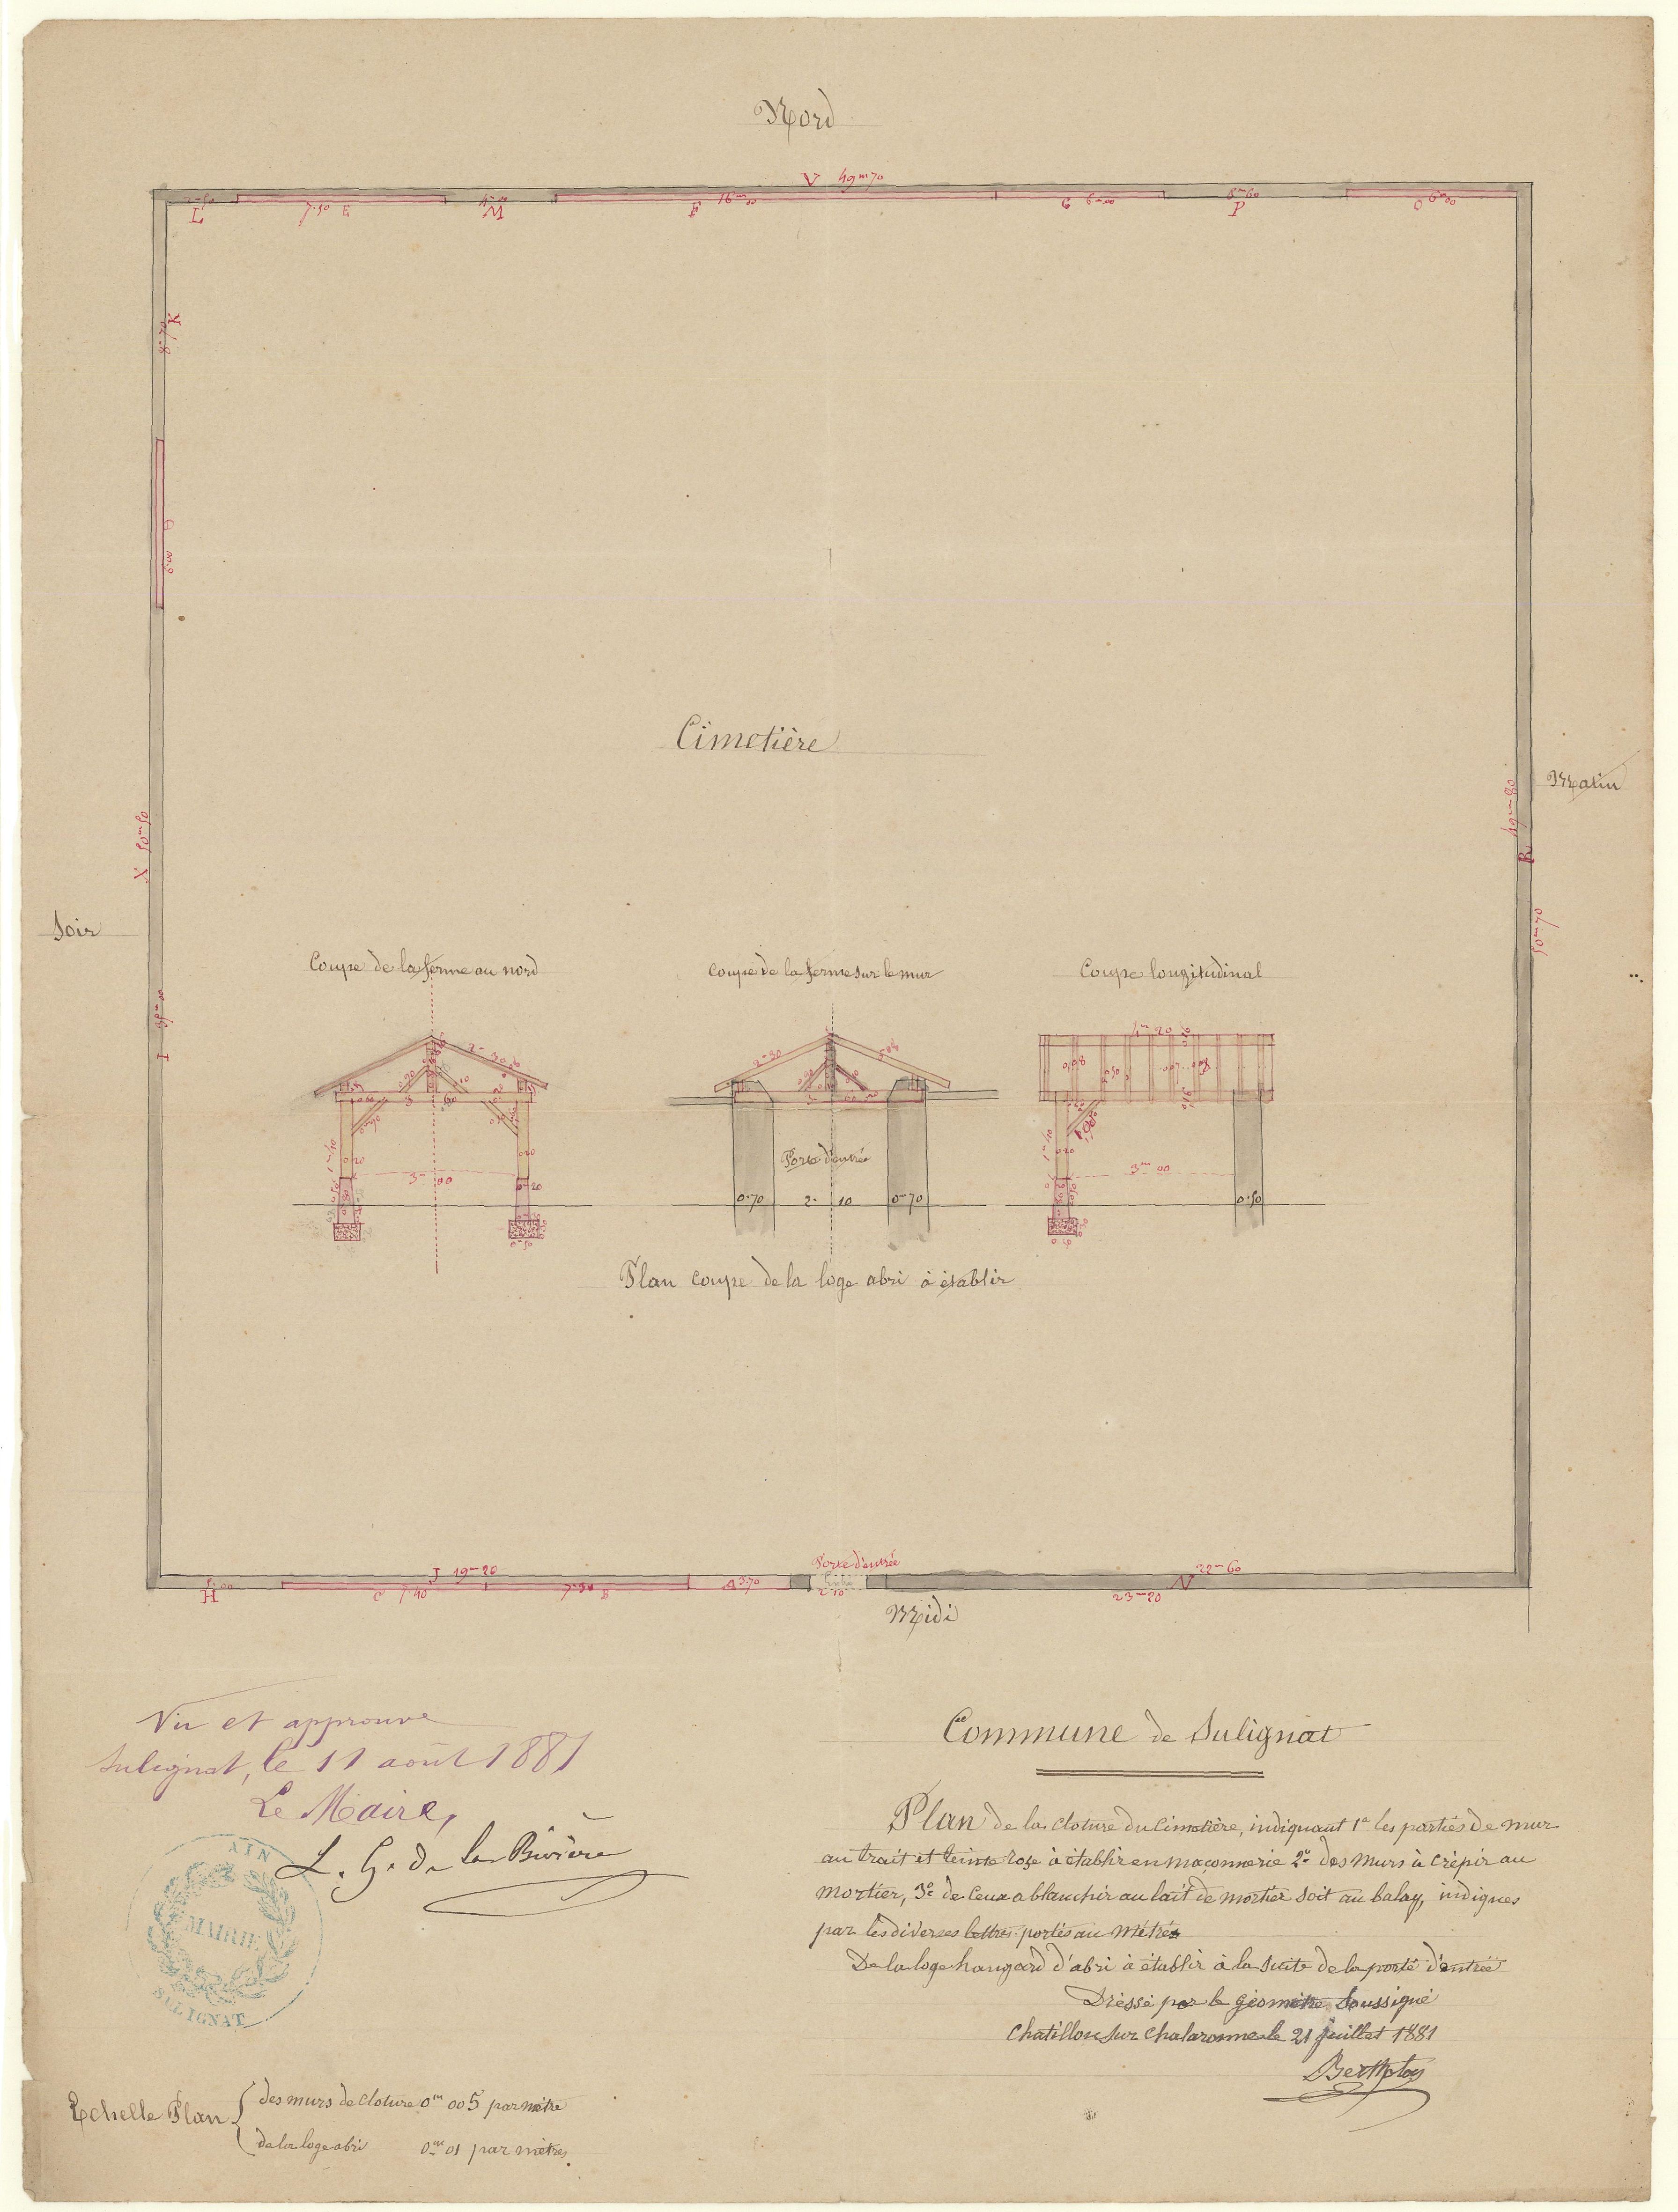 Nord
V 49m70
L
E 7.50
M
F 16m00
G 9m00
P 8m60
O 9m00
K 8.70
6.00
Cimetière
Matin
49m80
R
50m70
X 50m50
Soir
I
Coupe de la ferme au nord
Coupe de la ferme sur le mur
Coupe longitudinal
2m30
2m30
4m20
Porte d'entrée
3m00
3m00
0.70 2.10 0m70
0.50
Plan coupe de la loge abri à établir
Porte d'entrée
J 19m20
22m60
H
C 7.40
B
A 3.70
2m10
23m20
N
Midi
Vu et approuvé
Sulignat, le 11 août 1881
Le Maire,
L. G. de la Rivière
AIN
MAIRIE
SULIGNAT
Commune de Sulignat
Plan de la cloture du Cimetière, indiquant 1e les parties de mur
au trait et teinte rose à établir en maçonnerie 2e des murs à crépir au
mortier, 3e de ceux a blanchir au lait de mortier soit au balay, indiques
par les diverses lettres portés au métré
De la loge hangard d'abri à établir à la suite de la porte d'entrée
Dressé par le géomètre soussigné
Chatillon sur Chalaronne le 21 juillet 1881
Echelle Plan { des murs de cloture 0m 005 par mètre
de la loge abri 0m 01 par mètre.